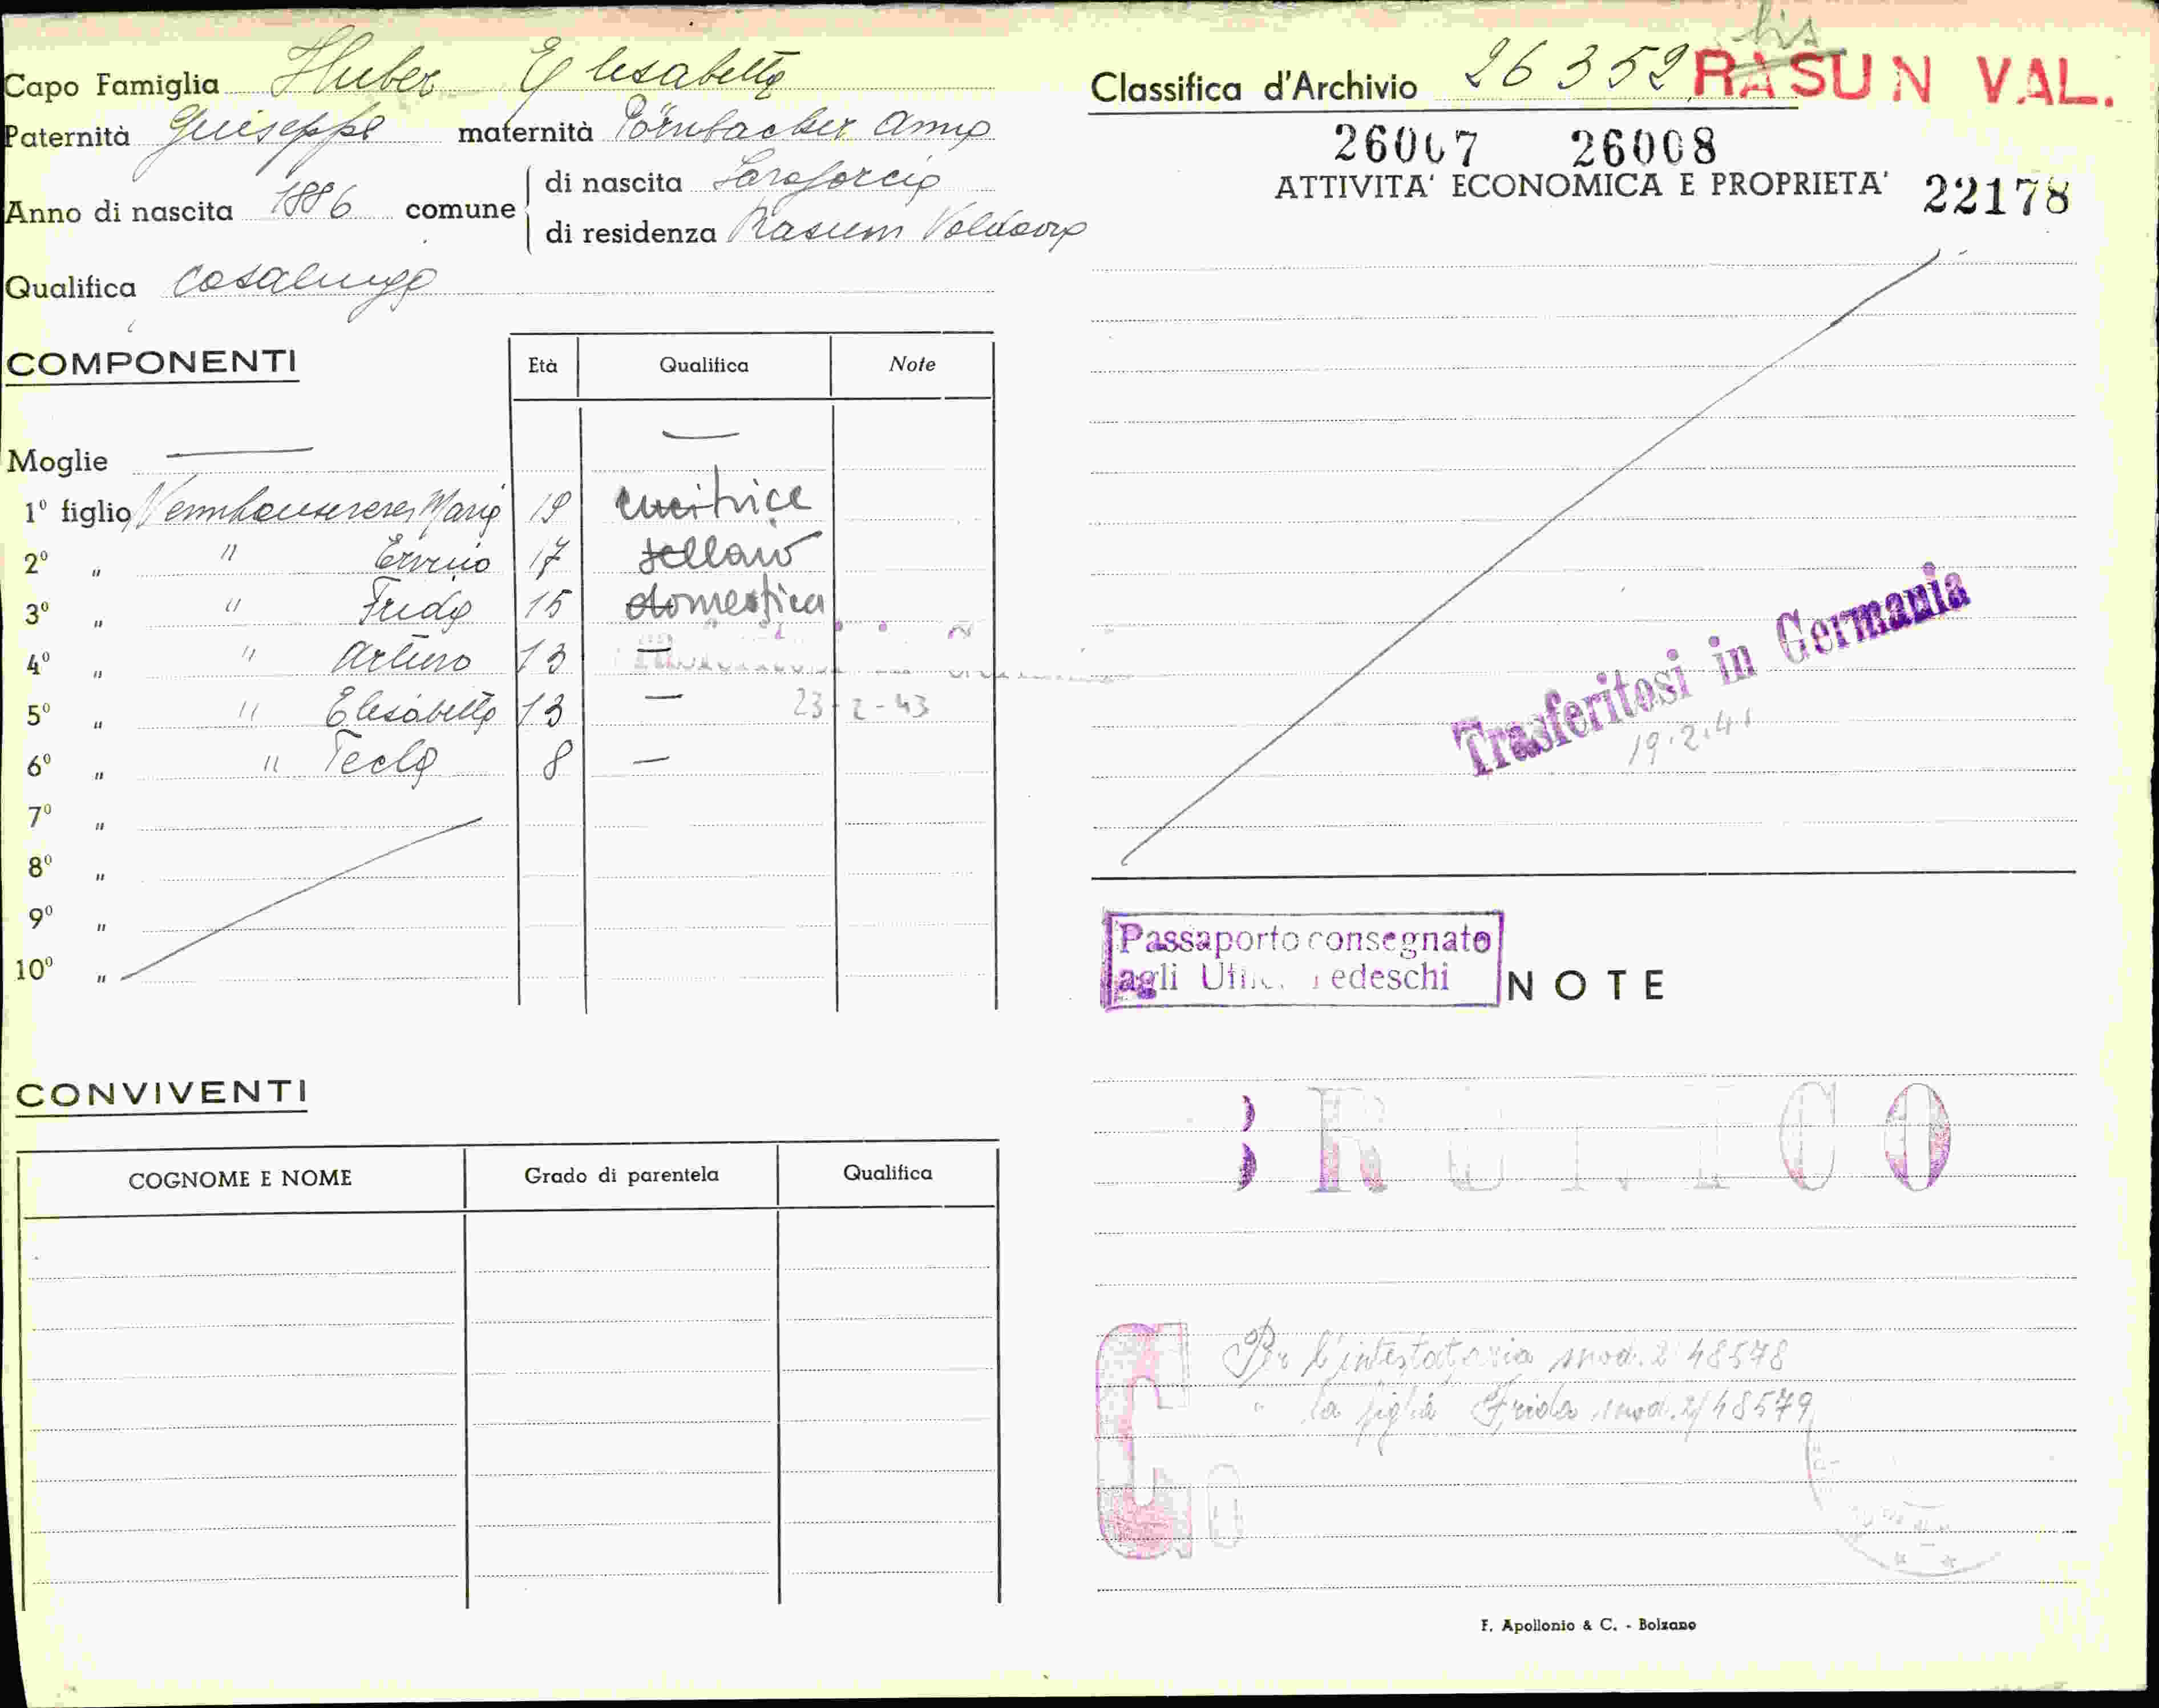 Capo Famiglia Huber Elisabetta
Paternità Giuseppe maternità Pörnbacher Anna
Anno di nascita 1886 comune di nascita
di residenza Rasun Valdaora
Qualifica casalinga
COMPONENTI
Età Qualifica Note
Moglie — —
1º figlio Maria 19 cucitrice
2º " " Ervino 17 sellaio
3º " " Frida 15 domestica
4º " " Arturo 13 —
5º " " Elisabetta 13 — 23-2-43
6º " " Tecla 8 —
7º "
8º "
9º "
10º "
CONVIVENTI
COGNOME E NOME Grado di parentela Qualifica
bis
Classifica d'Archivio 26352 RASUN VAL.
26007 26008
ATTIVITA' ECONOMICA E PROPRIETA' 22178
Trasferitosi in Germania
19.2.41
Passaporto consegnato
agli Uffici Tedeschi
NOTE
BRUNICO
Per l'intestataria mod. 2 48578
" la figlia Frida mod. 2/48579
F. Apollonio & C. - Bolzano